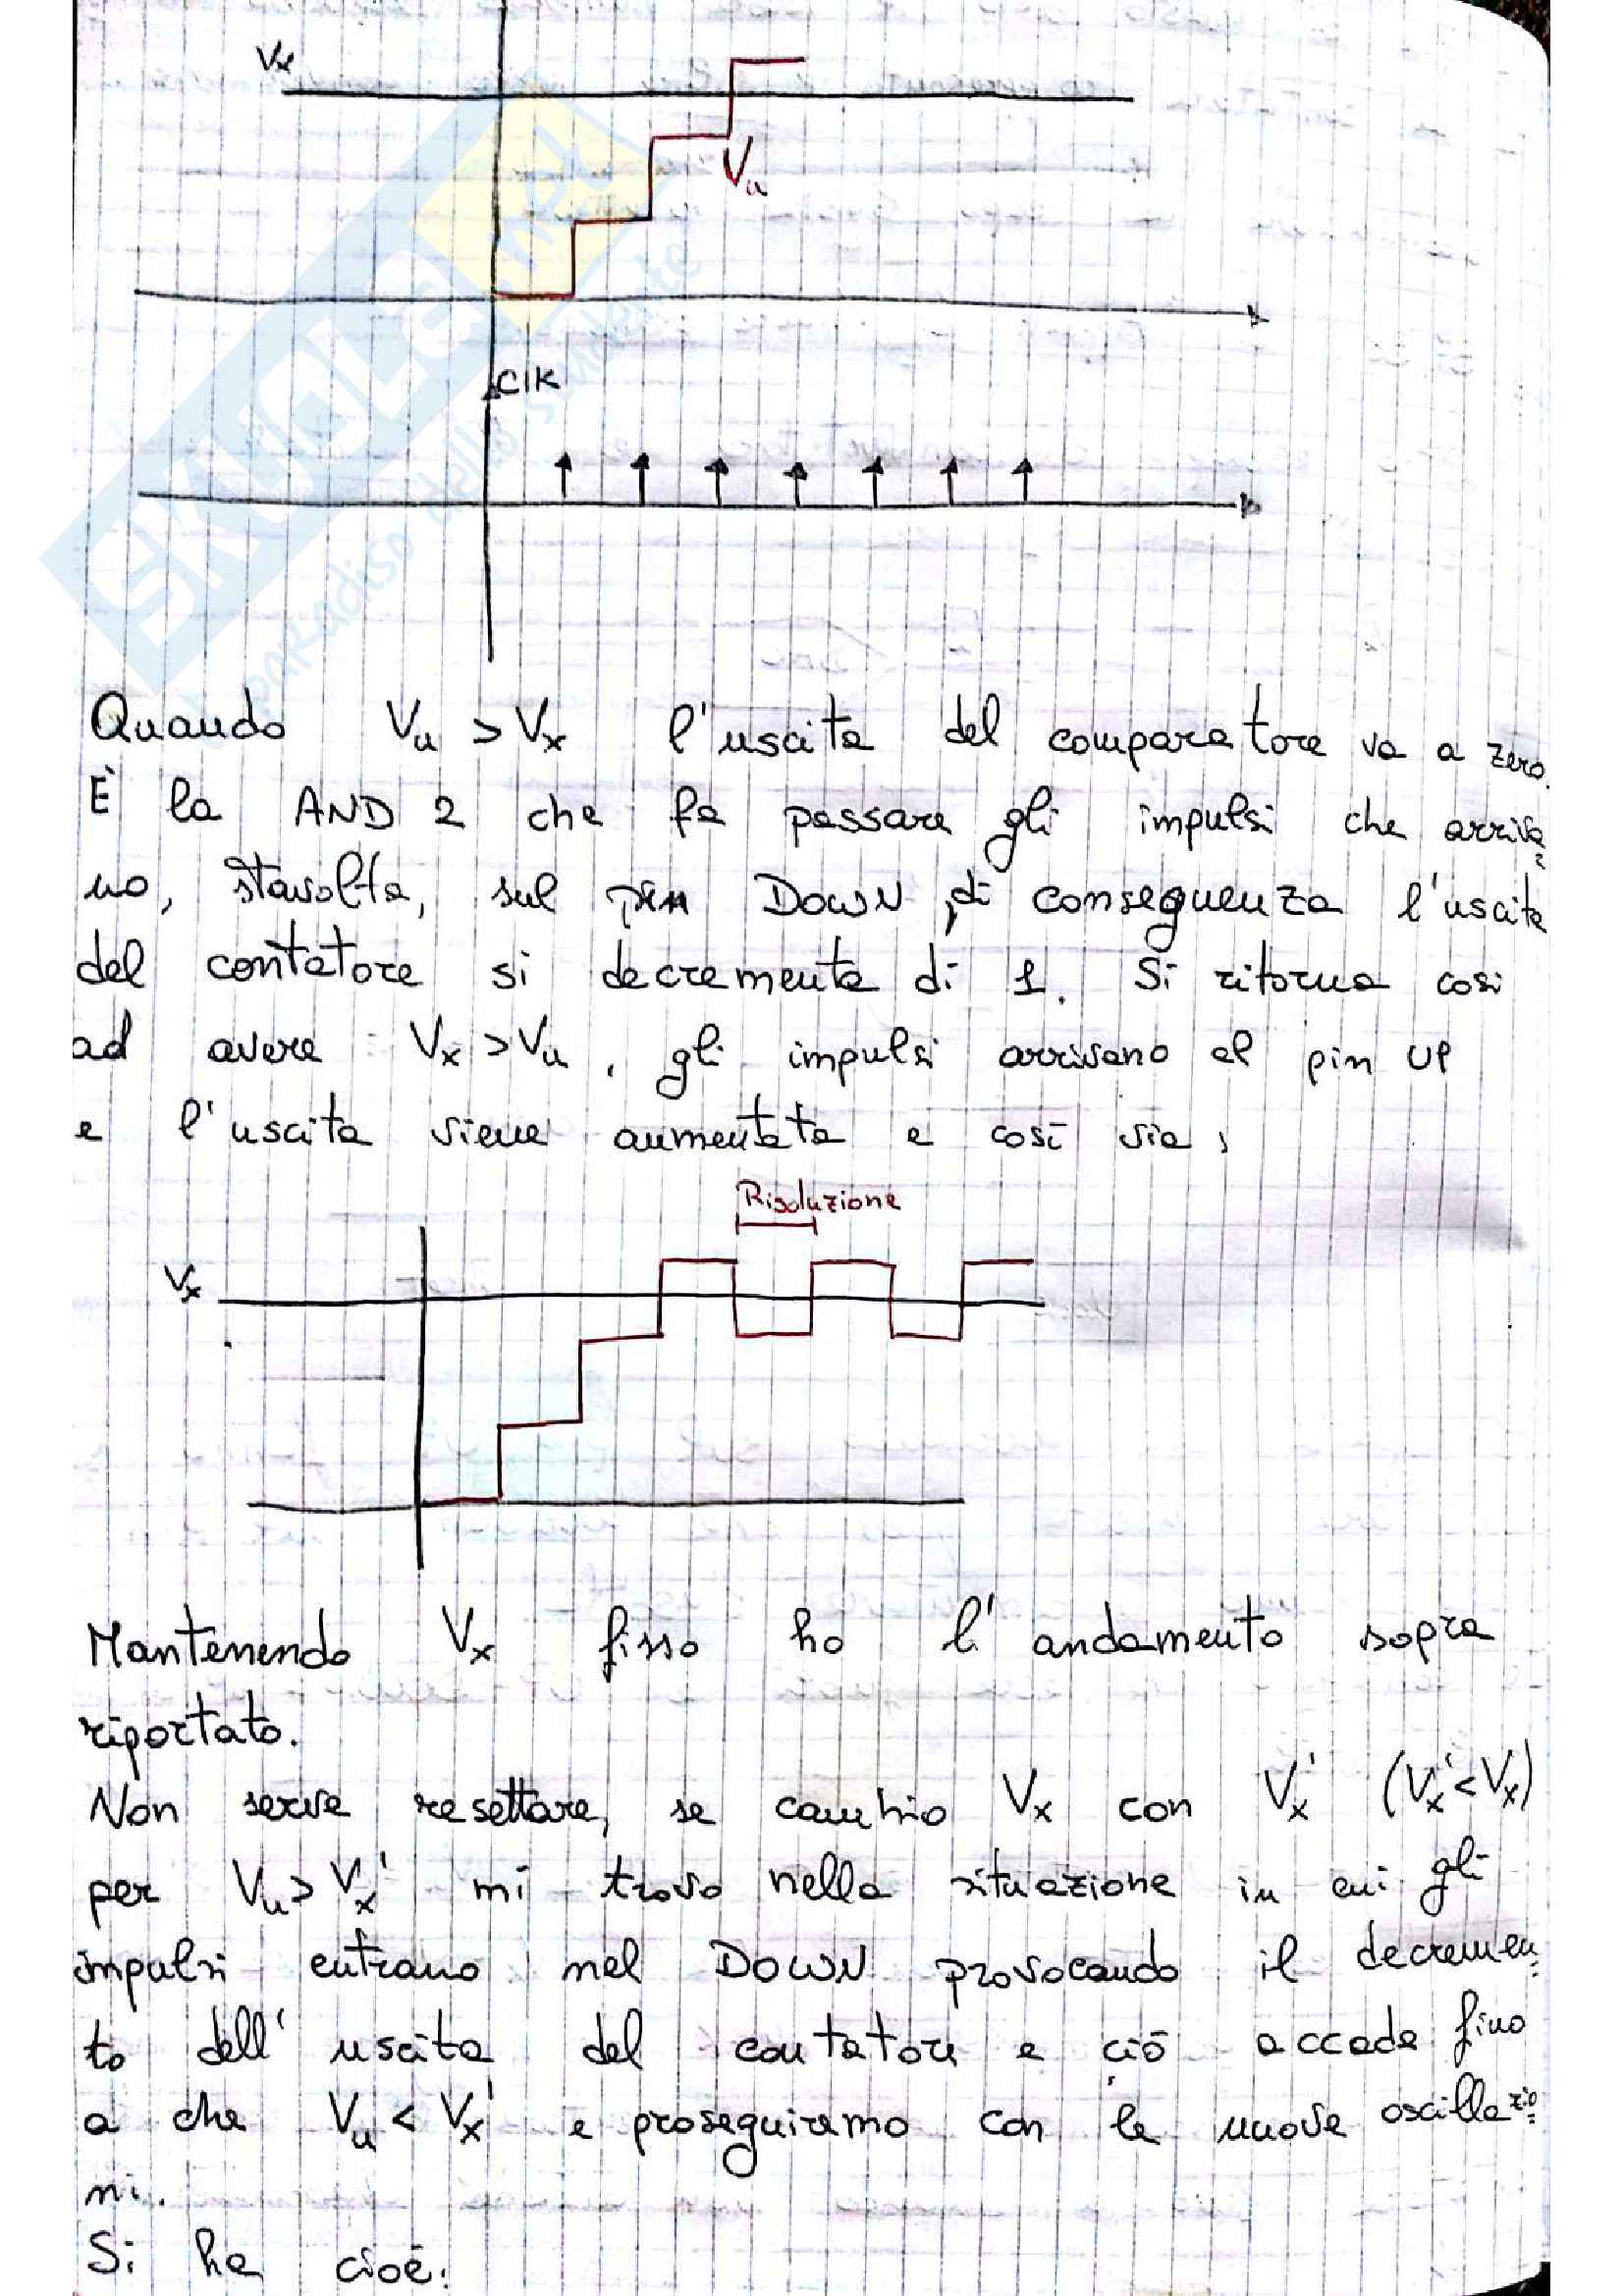 Vx
Vu
SKUOLA.net
il paradiso dello studente
clk
Quando Vu > Vx l'uscita del comparatore va a zero.
È la AND 2 che fa passare gli impulsi che arriva=
no, stavolta, sul pin DOWN, di conseguenza l'uscita
del contatore si decrementa di 1. Si ritorna così
ad avere Vx > Vu, gli impulsi arrivano al pin UP
e l'uscita viene aumentata e così via;
Risoluzione
Vx
Mantenendo Vx fisso ho l'andamento sopra
riportato.
Non serve resettare, se cambio Vx con Vx' (Vx' < Vx)
per Vu > Vx' mi trovo nella situazione in cui gli
impulsi entrano nel DOWN provocando il decremen=
to dell'uscita del contatore e ciò accade fino
a che Vu < Vx' e proseguiremo con le nuove oscillazio=
ni.
Si ha cioè: